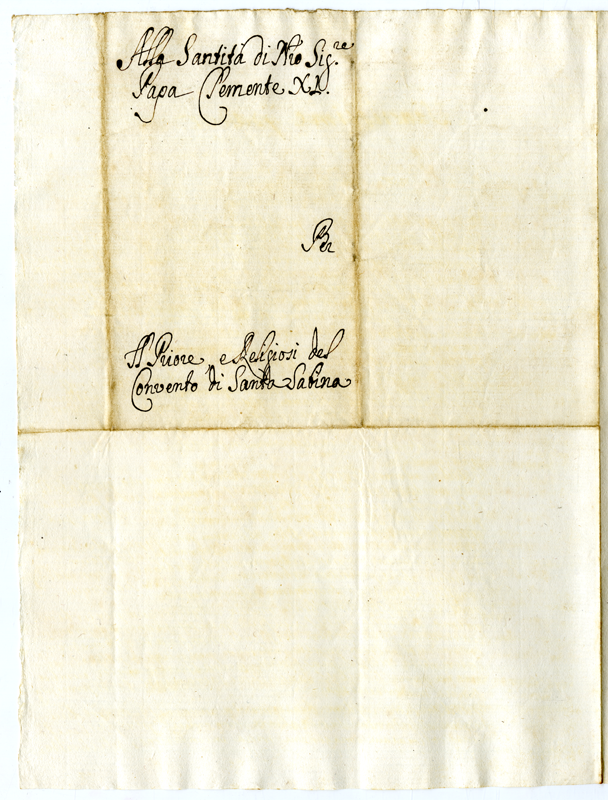 Alla Santità di Nro Sig.re
Papa Clemente XI.
Per
Il Priore, e Religiosi del
Convento di Santa Sabina